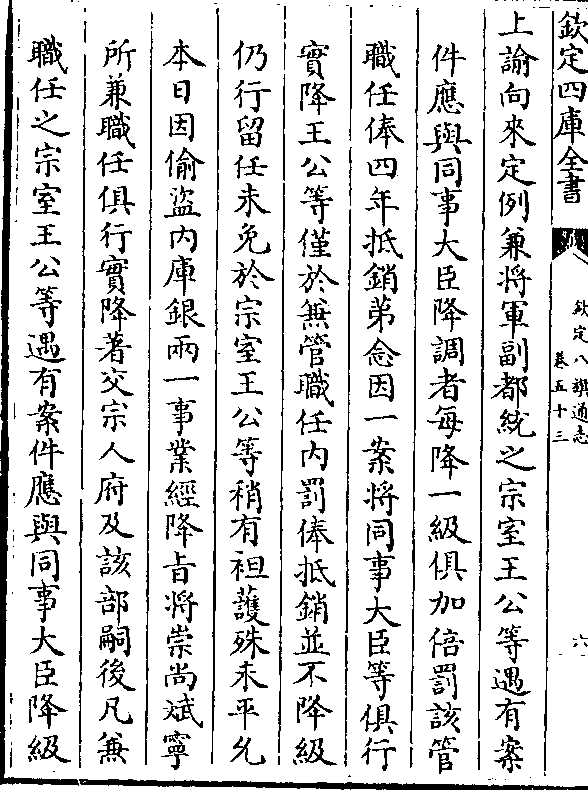 欽定四庫全書
欽定八旗通志
卷五十三
六
上諭向來定例兼將軍副都統之宗室王公等遇有案
件應與同事大臣降調者每降一級俱加倍罰該管
職任俸四年抵銷弟念因一案將同事大臣等俱行
實降王公等僅於兼管職任內罰俸抵銷並不降級
仍行留任未免於宗室王公等稍有袒護殊未平允
本日因偷盜內庫銀兩一事業經降旨將崇尚斌寧
所兼職任俱行實降著交宗人府及該部嗣後凡兼
職任之宗室王公等遇有案件應與同事大臣降級